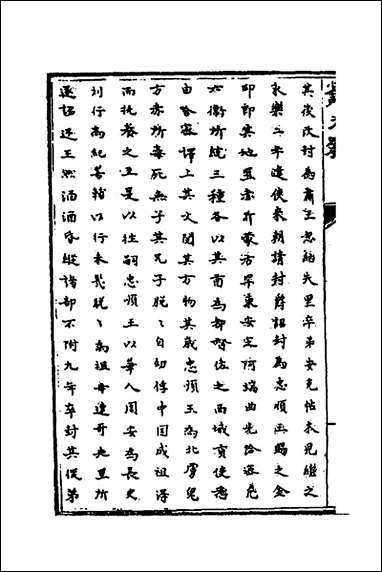 其後改封為肅王忽納失里卒弟安克帖木兒繼之
永樂二年遣使來朝請封爵詔封為忠順王賜之金
印即其地置赤斤蒙古罕東安定阿端曲先哈密凡
六衛所統三種各以其酋為都督佐之西域貢使悉
由哈密譯上其文聞其方物其忠順王為北虜鬼
方赤所毒死無子其兄子脫々自幼俘中國成祖得
而托養之至是以往嗣忠順王以華人周安為長史
劉行為紀善輔以行未幾脫々為祖母速哥失里所
逐詔還王然酒酒昏縱諸部不附九年卒封其從弟